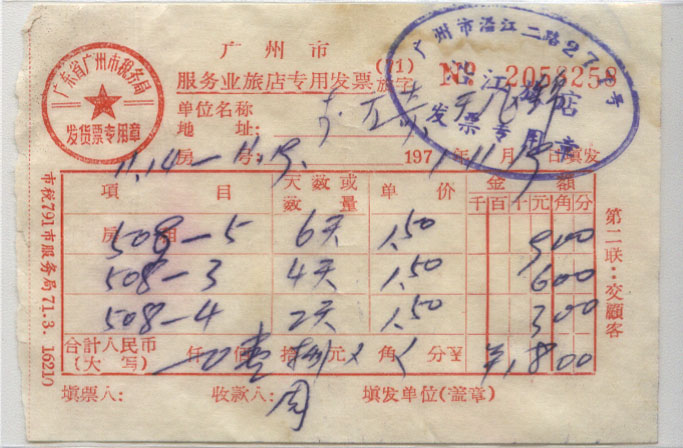 广州市
服务业旅店专用发票 (71)旅字 № 2058258
广东省广州市税务局
发货票专用章
广州市沿江二路27号
沿江旅店
发票专用章
单位名称
地 址:
房 号: 11.14—11.19. 1971年11月19日填发
項 目 天数或数量 单价 金額
千百十元角分
房 租 508—5 6天 1.50 900
508—3 4天 1.50 600
508—4 2天 1.50 300
合計人民币(大写) 仟 佰 壹拾捌元 角 分 ¥ 1,800
填票人: 收款人: 填发单位(盖章)
市税791市服务局71.3. 16210
第二联:交顧客